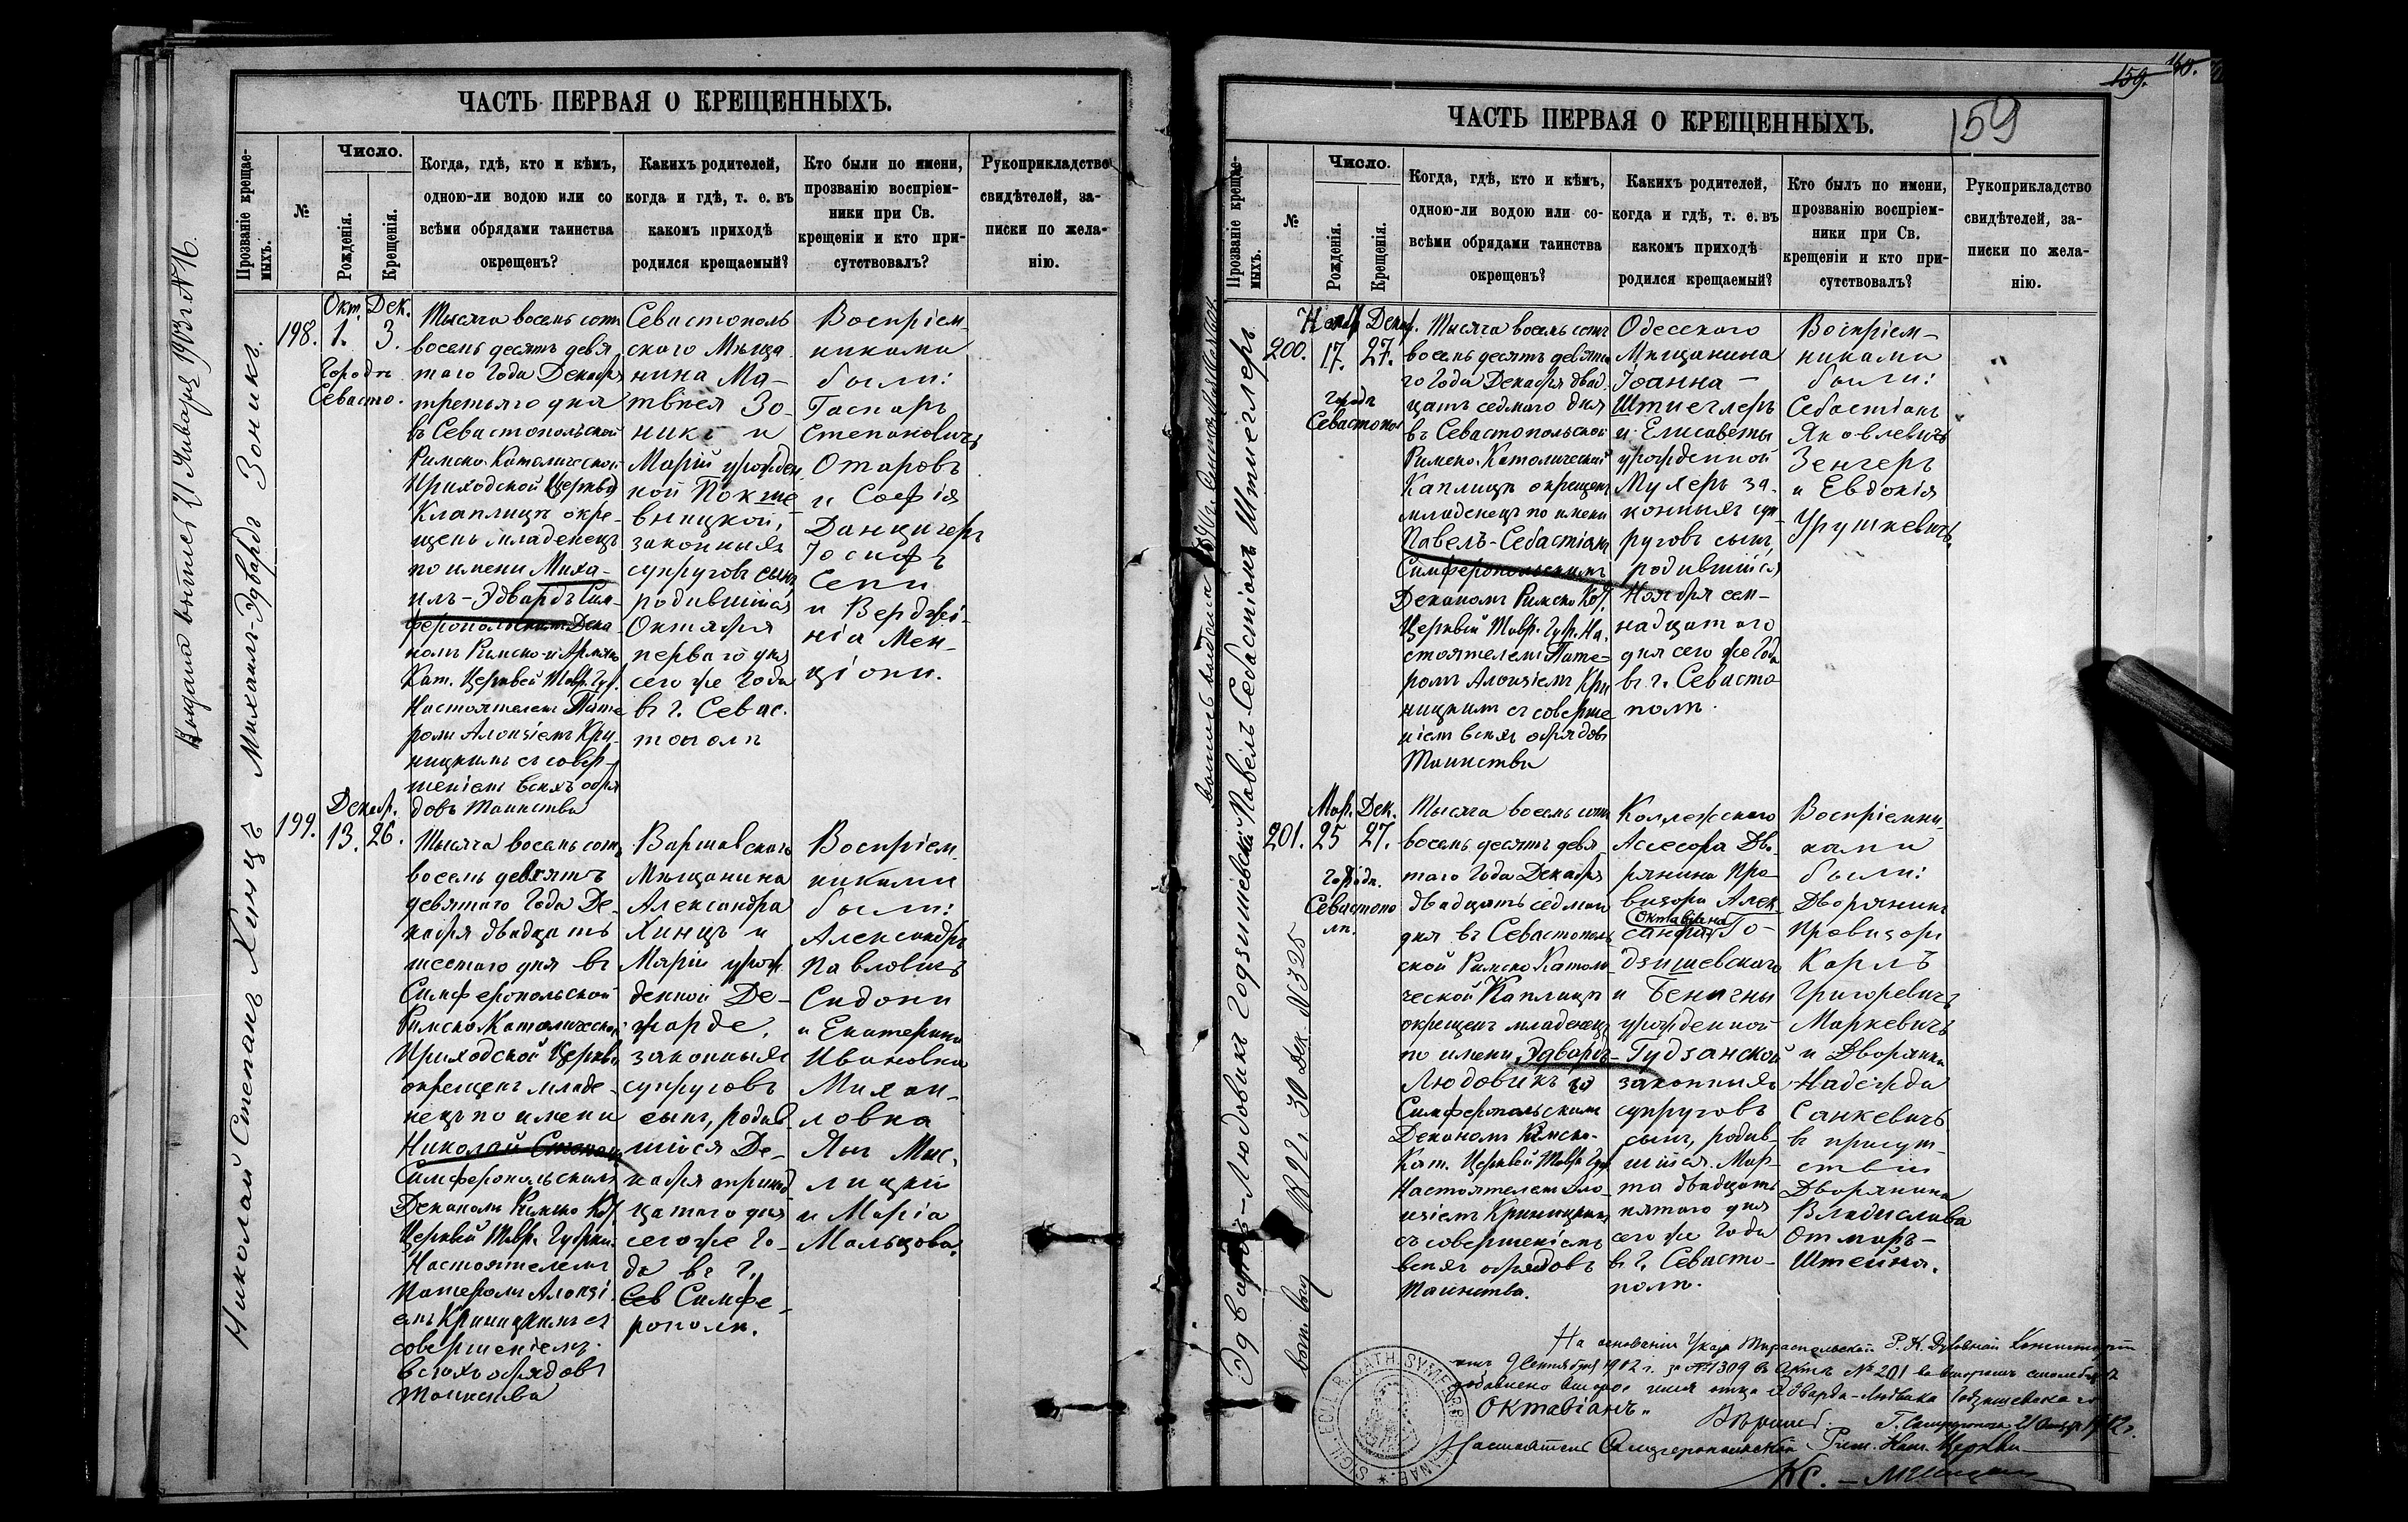 ЧАСТЬ ПЕРВАЯ О КРЕЩЕННЫХЪ.
Прозваніе крещае-
мыхъ.
№
Число.
Рожденія.
Крещенія.
Когда, гдѣ, кто и кѣмъ,
одною-ли водою или со
всѣми обрядами таинства
окрещенъ?
Какихъ родителей,
когда и гдѣ, т. е. въ
какомъ приходѣ
родился крещаемый?
Кто были по имени,
прозванію воспріем-
ники при Св.
крещеніи и кто при-
сутствовалъ?
Рукоприкладство
свидѣтелей, за-
писки по жела-
нію.
Выдана выпись 21 Января 1903 г. № 16.
Михаилъ-Эдвардъ Зоникъ.
198.
Окт. Дек.
1. 3.
Городъ
Севасто.
Тысяча восемь сотъ
восемь десятъ девя
таго Года Декабря
третьяго дня
въ Севастопольской
Римско-Католической
Приходской Церкви
Клаплицѣ окре-
щенъ младенецъ
по имени Миха-
илъ-Эдвардъ Сим-
феропольскимъ Дека-
номъ Римско-и Армяно
Кат. Церквей Тавр. Губ.
Настоятелемъ Пате
ромъ Алоизіемъ Кри-
ницкимъ съ совер-
шеніемъ всѣхъ обря
довъ Таинства
Севастополь
скаго Мѣща
нина Ма-
твѣея Зо-
никъ и
Маріи урожден
ной Покше
вницкой,
законныхъ
супруговъ сынъ
родившійся
Октября
перваго дня
сего же Года
въ г. Севас.
тополѣ
Воспріем-
никами
были:
Гаспаръ
Степановичъ
Отаровъ
и Софія
Данцигеръ
Іосифъ
Сепи
и Верджи-
нія Мен-
ціони.
Николай Степанъ Хинцъ
199.
Декабр.
13. 26.
Тысяча восемь сотъ
восемь девятъ
девятаго Года Де-
кабря двадцать
шестаго дня въ
Симферопольской
Римско Католической
Приходской Церкви
окрещенъ младе-
нецъ по имени
Николай Степанъ
Симферопольскимъ
Деканомъ Римско Кат.
Церквей Тавр. Губерн.
Настоятелемъ
Патеромъ Алоизі
емъ Криницкимъ съ
совершеніемъ
всѣхъ обрядовъ
Таинства
Варшавскаго
Мѣщанина
Александра
Хинцъ и
Маріи урож
денной Де-
жарде,
законныхъ
супруговъ
сынъ, родив-
шійся Де-
кабря тринад
цатаго дня
сего же Го-
да въ г.
Сев Симфе-
рополѣ.
Воспріем-
никами
были:
Александръ
Павловичъ
Сидони
и Екатерина
Ивановна
Михай-
ловна
Янъ Мыс-
лицки
и Марія
Мальцова.
159. 160.
159
ЧАСТЬ ПЕРВАЯ О КРЕЩЕННЫХЪ.
Прозваніе крещае-
мыхъ.
№
Число.
Рожденія.
Крещенія.
Когда, гдѣ, кто и кѣмъ,
одною-ли водою или со-
всѣми обрядами таинства
окрещенъ?
Какихъ родителей,
когда и гдѣ, т. е. въ
какомъ приходѣ
родился крещаемый?
Кто былъ по имени,
прозванію воспріем-
ники при Св.
крещеніи и кто при-
сутствовалъ?
Рукоприкладство
свидѣтелей, за-
писки по жела-
нію.
Павелъ-Себастіанъ Штиглеръ
200.
Нояб. Декаб.
17. 27.
Городъ
Севастопол
Тысяча восемь сотъ
восемь десятъ девята
го Года Декабря двад
цать седмаго дня
въ Севастопольской
Римско-Католической
Каплицѣ окрещенъ
младенецъ по имени
Павелъ-Себастіанъ
Симферопольскимъ
Деканомъ Римско Кат.
Церквей Тавр. Губ. На-
стоятелемъ Пате-
ромъ Алоизіемъ Кри
ницкимъ съ соверше
ніемъ всѣхъ обрядовъ
Таинства
Одесскаго
Мѣщанина
Іоанна
Штиеглеръ
и Елисаветы
урожденной
Мухеръ за-
конныхъ суп-
руговъ сынъ,
родившійся
Ноября сем-
надцатаго
дня сего же Года
въ г. Севасто-
полѣ.
Воспріем-
никами
были:
Себастіанъ
Яковлевичъ
Зенгеръ
и Евдокія
Урушкевичъ.
Эдвардъ-Людовикъ Годзишевскій
1892 г. 30 Дек. № 325
201.
Мар. Дек.
25 27.
Городъ.
Севастопо
лѣ.
Тысяча восемь сотъ
восемь десятъ девя-
таго Года Декабря
двадцать седмаго
дня въ Севастополь
ской Римско Католи
ческой Каплицѣ
окрещенъ младенецъ
по имени Эдвардъ-
Людовикъ
Симферопольскимъ
Деканомъ Римско-
Кат. Церквей Тавр. Губ.
Настоятелемъ Ало-
изіемъ Криницкимъ
съ совершеніемъ
всѣхъ обрядовъ
Таинства.
Коллежскаго
Ассесора Дво-
рянина Про-
визора Алек-
Октавіана
сандра Го-
дзишевскаго
и Бенигны
урожденной
Гудзанской
законныхъ
супруговъ
сынъ, родив-
шійся Мар-
та двадцать
пятаго дня
сего же Года
въ г. Севасто-
полѣ.
Воспріемни-
ками
были:
Дворянинъ
Провизоръ
Карлъ
Григоревичъ
Маркевичъ
и Дворянка
Надежда
Санкевичъ
въ присут-
ствіи
Дворянина
Владислава
Отмаръ-
Штейна.
На основаніи Указа Тираспольской Р. К. Духовной Консисторіи
отъ 9 Сентября 1902 г. за № 1309 въ Актѣ № 201 во второмъ столбцѣ
добавлено второе имя отца Эдварда-Людвика Годзишевскаго
„Октавіанъ".
Г. Симферополь 21
Настоятель Симферопольской Рим. Кат. Церкви